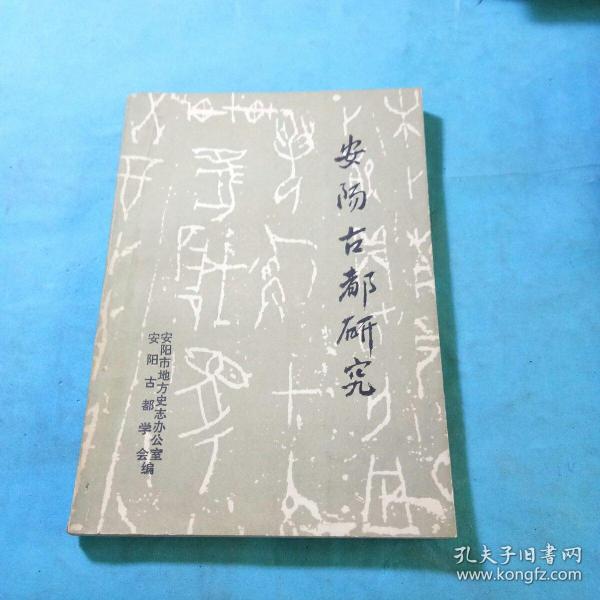 安阳古都研究
安阳市地方史志办公室
安阳古都学会编
孔夫子旧书网
www.kongfz.com